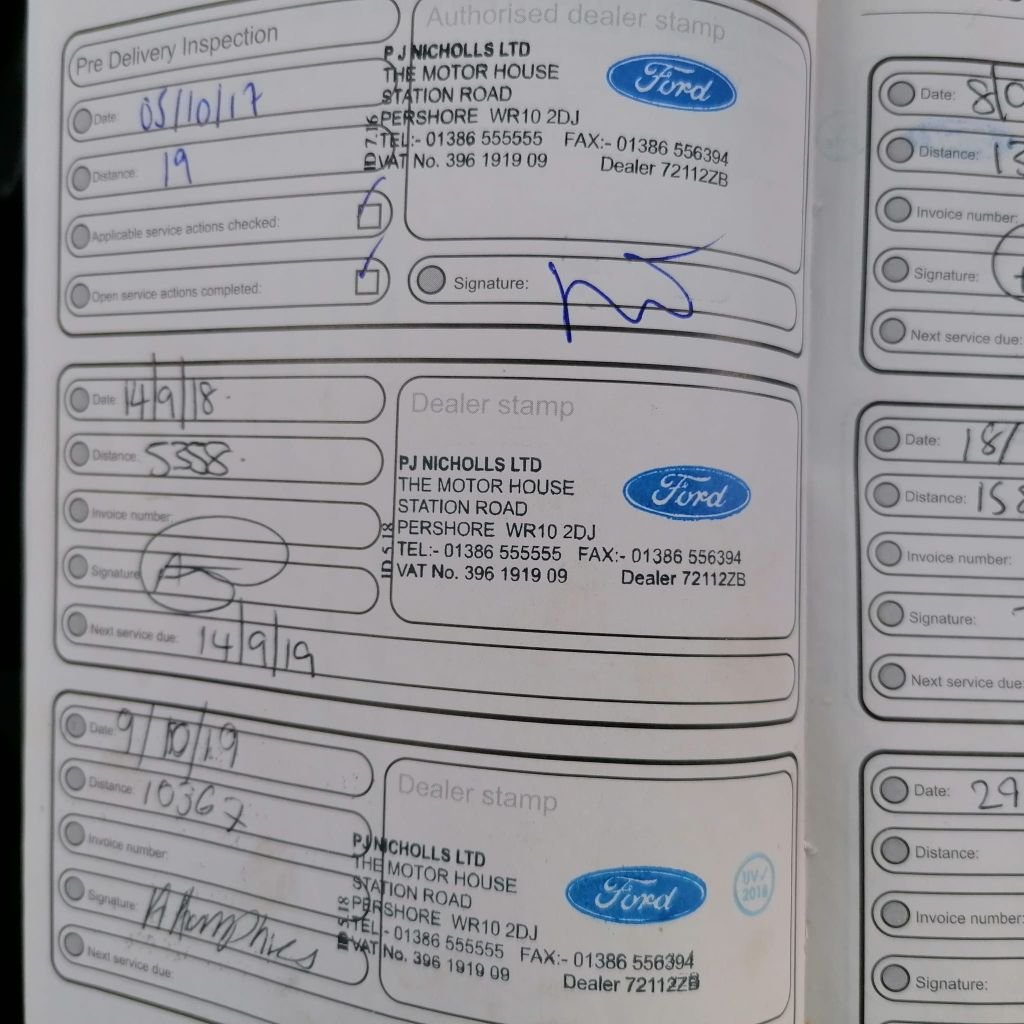 Pre Delivery Inspection
Date: 05/10/17
Distance: 19
Applicable service actions checked:
Open service actions completed:
Authorised dealer stamp
P J NICHOLLS LTD
THE MOTOR HOUSE
STATION ROAD
PERSHORE WR10 2DJ
TEL:- 01386 555555 FAX:- 01386 556394
VAT No. 396 1919 09 Dealer 72112ZB
ID 7.16
Ford
Signature:
Date: 14/9/18
Distance: 5358
Invoice number:
Signature:
Next service due: 14/9/19
Dealer stamp
PJ NICHOLLS LTD
THE MOTOR HOUSE
STATION ROAD
PERSHORE WR10 2DJ
TEL:- 01386 555555 FAX:- 01386 556394
VAT No. 396 1919 09 Dealer 72112ZB
ID 5.18
Ford
Date: 9/10/19
Distance: 10367
Invoice number:
Signature:
Next service due:
Dealer stamp
PJ NICHOLLS LTD
THE MOTOR HOUSE
STATION ROAD
PERSHORE WR10 2DJ
TEL:- 01386 555555 FAX:- 01386 556394
VAT No. 396 1919 09 Dealer 72112ZB
ID 5.18
Ford
UV✓
2018
Date: 8/0
Distance: 13
Invoice number:
Signature:
Next service due:
Date: 18/
Distance: 158
Invoice number:
Signature:
Next service due:
Date: 29
Distance:
Invoice number:
Signature: